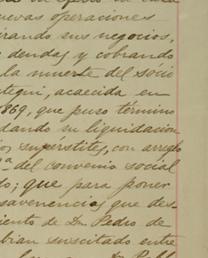 nuevas operaciones
irando sus negocios,
deudas y cobrando
la muerte del sócio
tegui, acaecida en
1869, que puso término
dando su liquidacion
supérstites, con arreglo
del convenio social
que para poner
savenencias que des
iento de Dn. Pedro de
bian suscitado entre